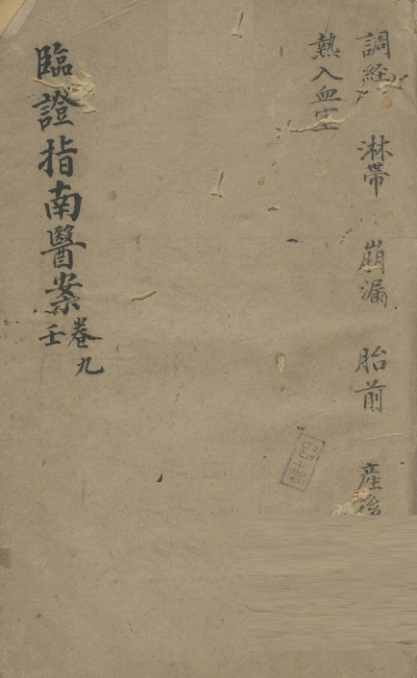 調經 淋帶 崩漏 胎前 産後
熱入血室
臨證指南醫案
卷九
壬